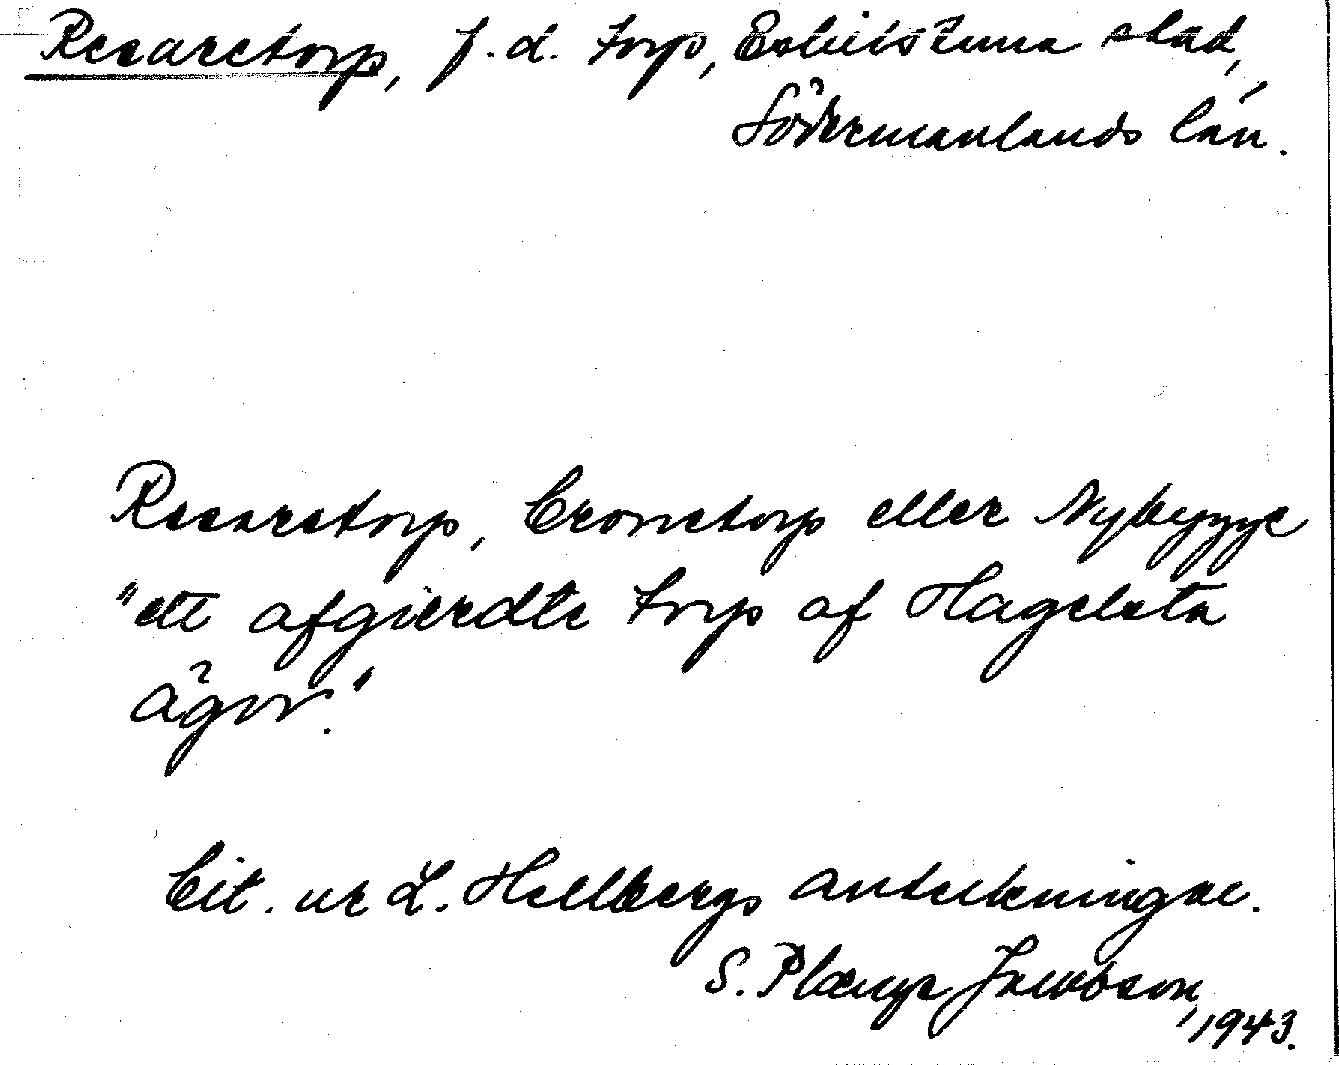 Recaretorp, f.d. torp, Eskilstuna stad,
Södermanlands län.
Recaretorp, Cronetorp eller Nybygge
"ett afgierdte torp af Hagelsta
ägor."
Cit. ur L. Hellbergs anteckningar.
S. Plænge Jacobson, 1943.